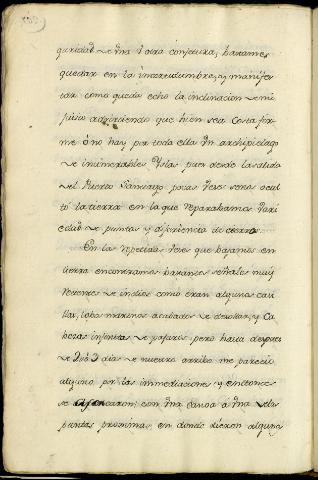 guridad de una ú otra conjetura, bastantes
quedar en la incertidumbre, y manifes-
tar como queda echo la inclinacion de mi
juicio advirtiendo que bien sea Costa fir-
me ó no hay por toda ella un archipielago
de inumerables Yslas pues desde la salida
del Puerto Santiago pocas veces senos ocul
tó la tierra en la que reparabamos vari
edad de puntas y diferiencia de
En las repetidas veces que bajamos en
tierra encontramos bastantes señales muy
recientes de indios como eran algunas casi
llas, lobos marinos acabados de desollar, y Ca
bezas infinitas de pajaros, pero hasta despues
de 2 ó 3 dias de nuestro arribo no parecio
alguno por las inmediaciones y entonces
se acercaron con una Canoa á una de las
puntas proxima, en donde dieron algunos